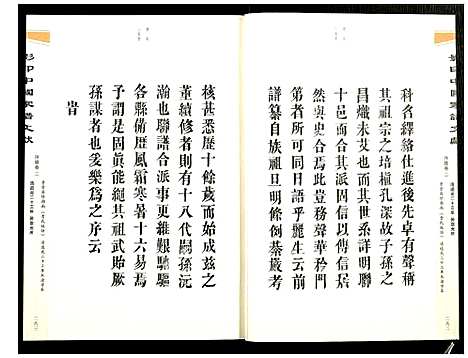 科名繹絡仕進後先卓有聲稱
其祖宗之培種孔深故子孫之
昌熾未艾也而其世系詳明聯
十邑而合其派因信以傳信昭
然與史合焉此豈務聲華矜門
第者所可同日語乎麗生云前
譜纂自族祖旦明條例綦嚴考
核甚悉歷十餘歲而成茲之
董續修者則有十八代嗣孫沅
瀚也聯譜合派事更艱鉅驅馳
各縣備歷風霜寒暑十六易焉
予謂是固眞能繩其祖武貽厥
孫謀者也爰樂爲之序云
旹
影印中國家譜文獻